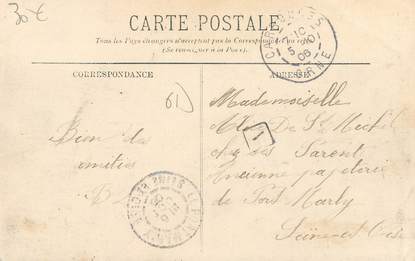 30€
CARTE POSTALE
Tous les Pays étrangers n'acceptent pas la Correspondance au recto
(Se renseigner à la Poste).
CORRESPONDANCE
ADRESSE
61
Bien des
amitiés
Mademoiselle
De St Michel
chez ses Parents
Ancienne papeterie
de Port Marly
Seine-et-Oise
1
ORNE
LE PORT-MARLY
SEINE-ET-OISE